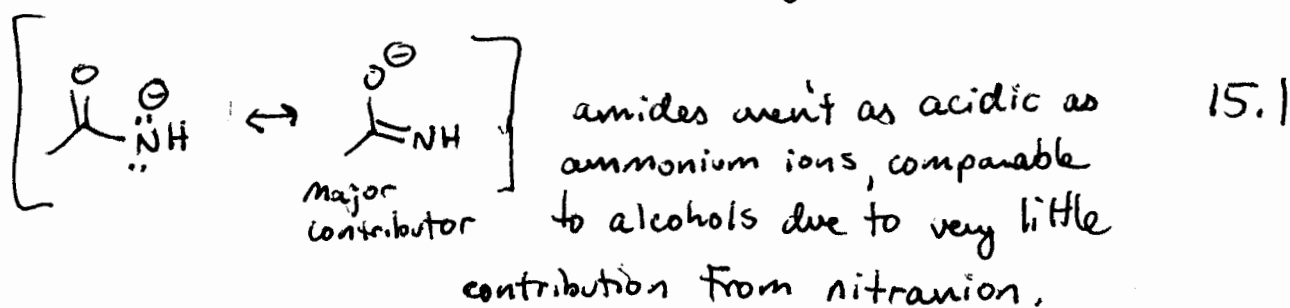 O ⊖ N̈H ↔ O ⊖ NH
Major
contributor
amides aren't as acidic as
ammonium ions, comparable
to alcohols due to very little
contribution from nitranion.
15.1